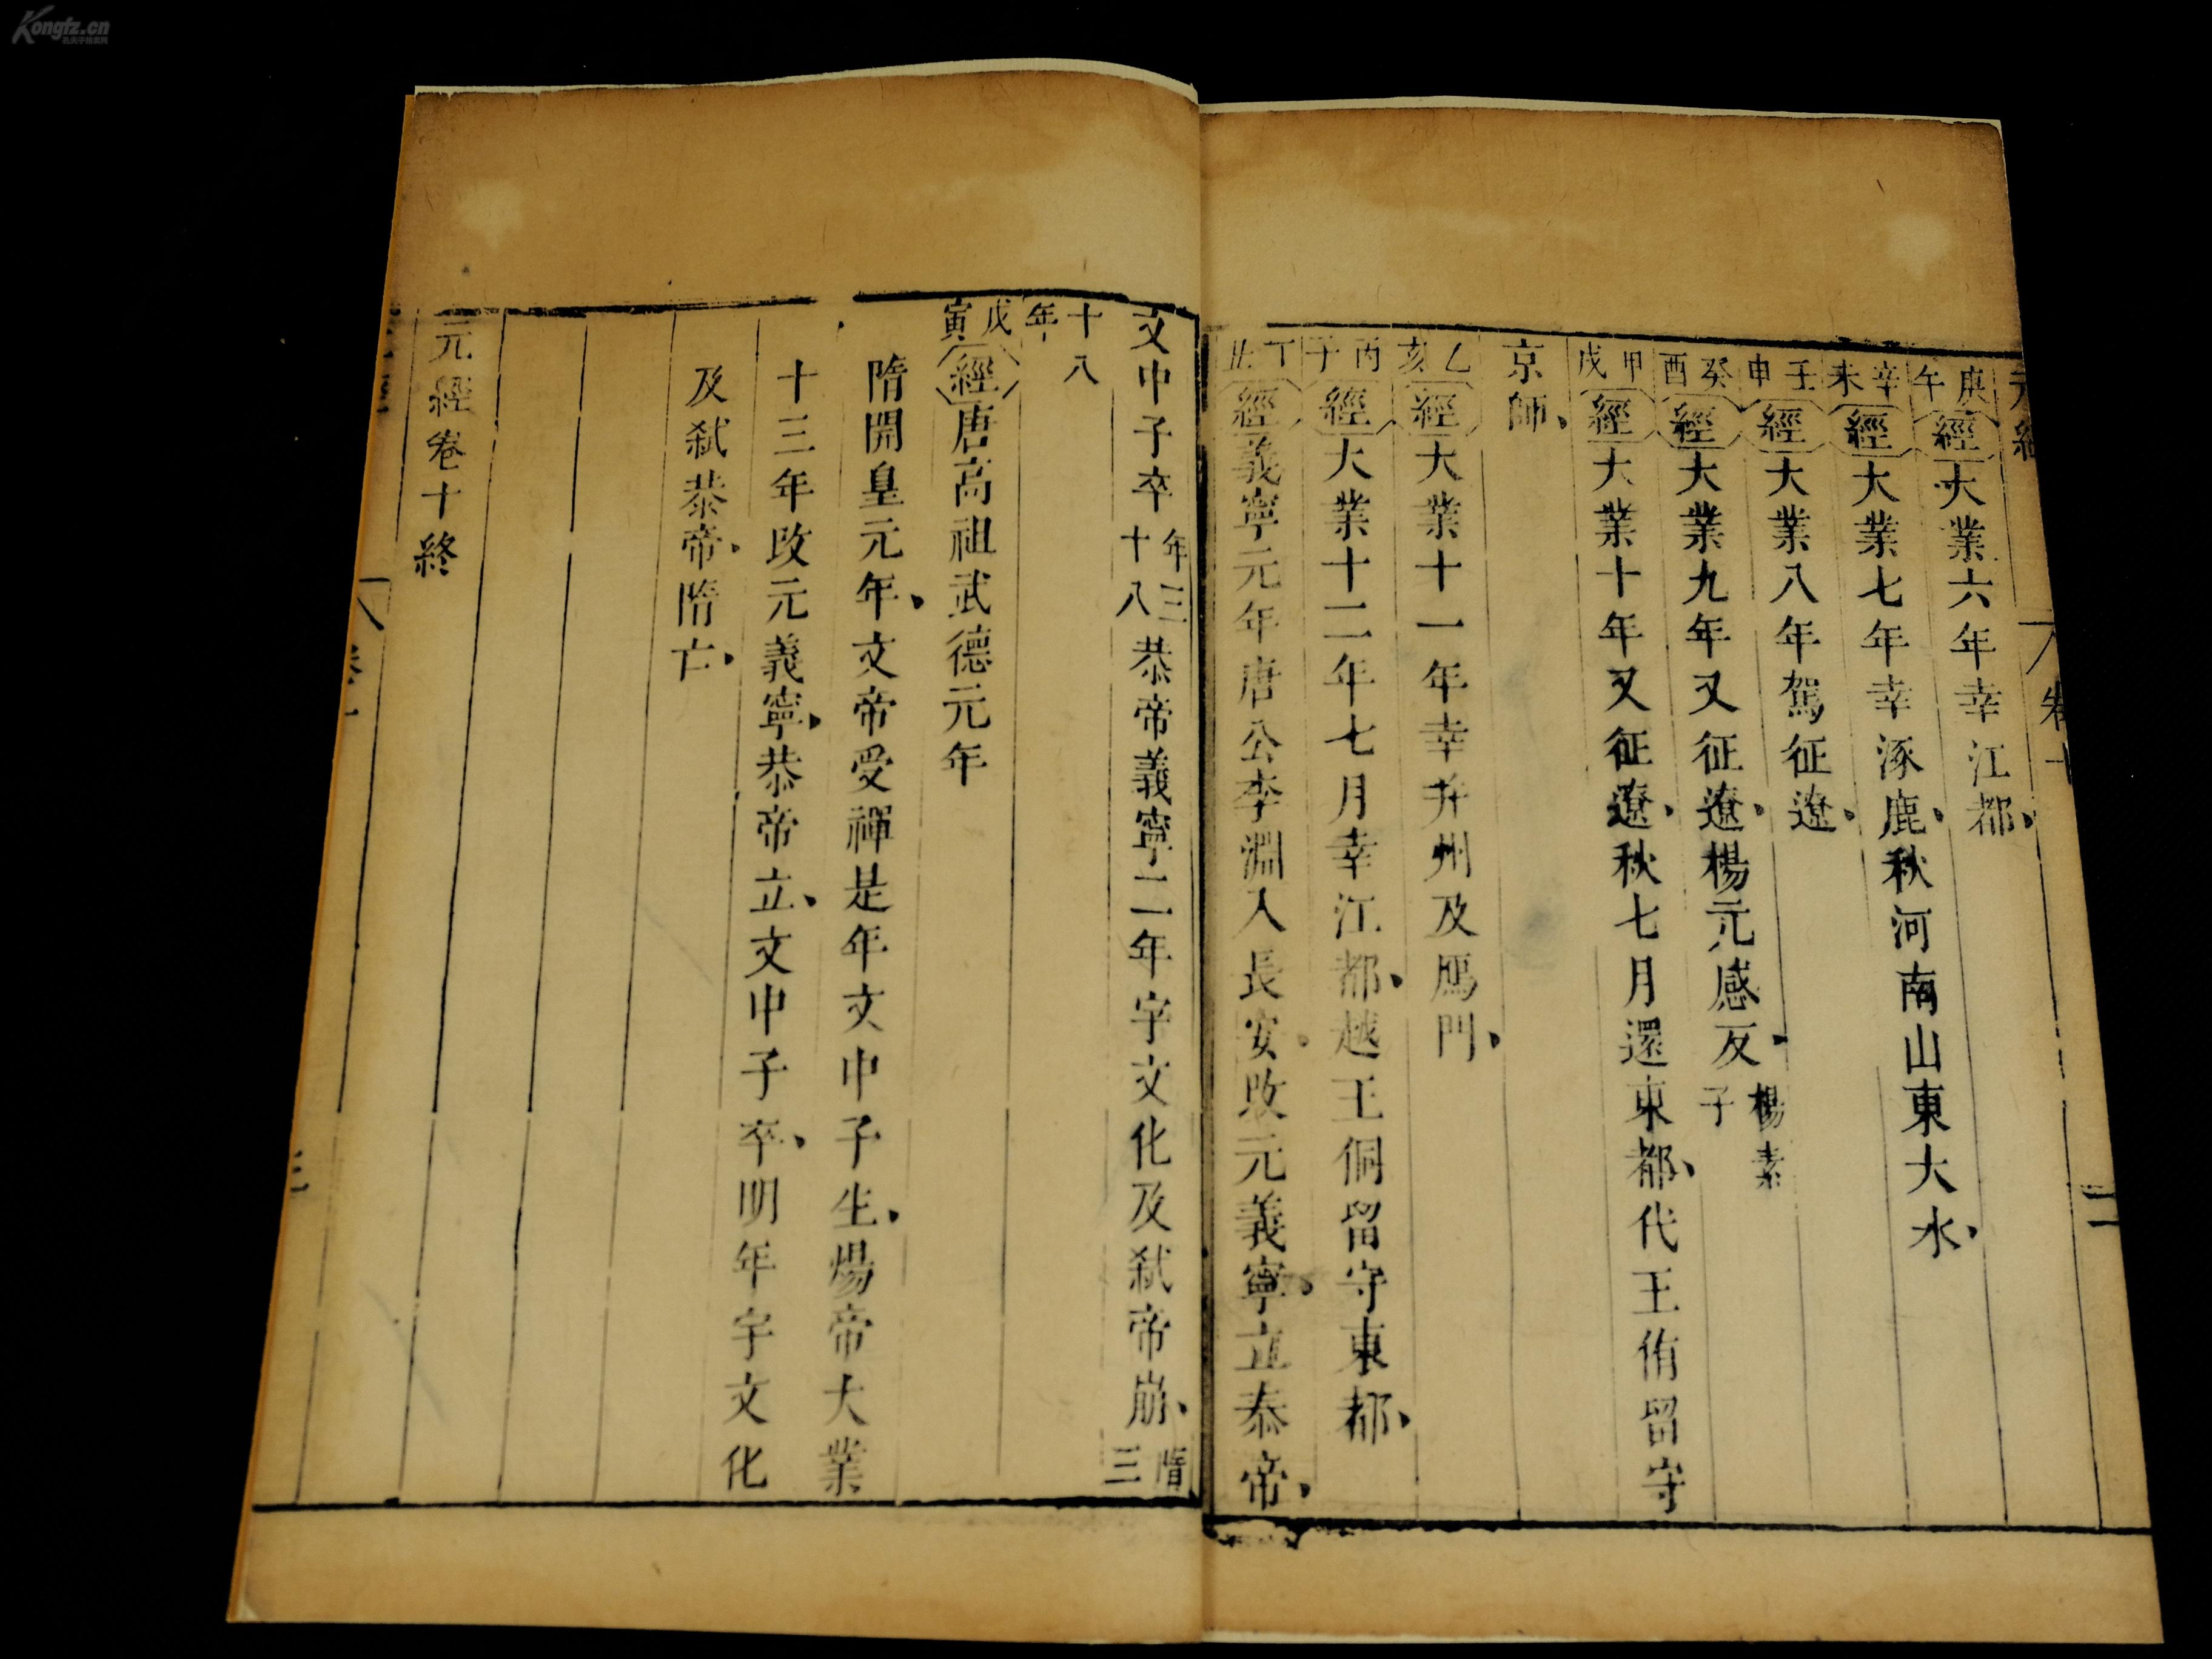 庚午經大業六年幸江都
辛未經大業七年幸涿鹿秋河南山東大水
壬申經大業八年駕征遼
癸酉經大業九年又征遼楊元感反楊素子
甲戌經大業十年又征遼秋七月還東都代王侑留守
京師
乙亥經大業十一年幸并州及鴈門
丙子經大業十二年七月幸江都越王侗留守東都
丁丑經義寧元年唐公李淵入長安改元義寧立泰帝
文中子卒年三十八恭帝義寧二年宇文化及弑帝崩隋三
十八年
戊寅經唐高祖武德元年
隋開皇元年文帝受禪是年文中子生煬帝大業
十三年改元義寧恭帝立文中子卒明年宇文化
及弑恭帝隋亡
元經卷十終
三
Kongfz.cn